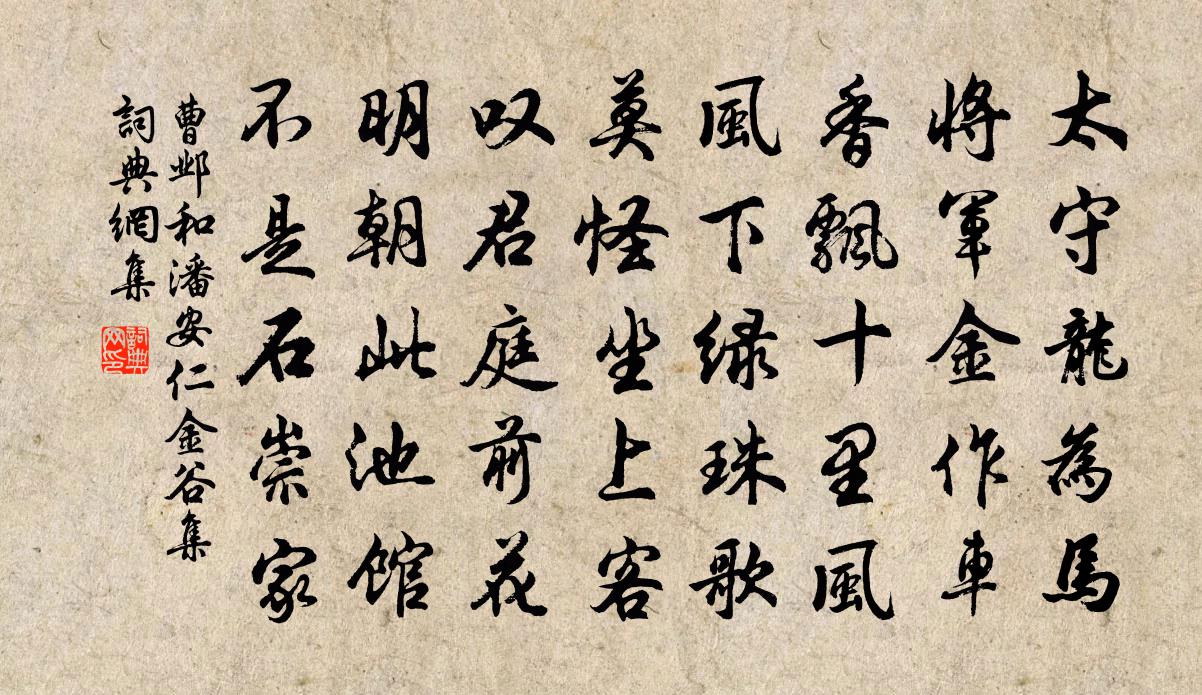 太守龍為馬
將軍金作車
香飄十里風
風下绿珠歌
莫怪坐上客
叹君庭前花
明朝此池館
不是石崇家
曹邺和潘安仁金谷集
詞典網集
詞典
网印